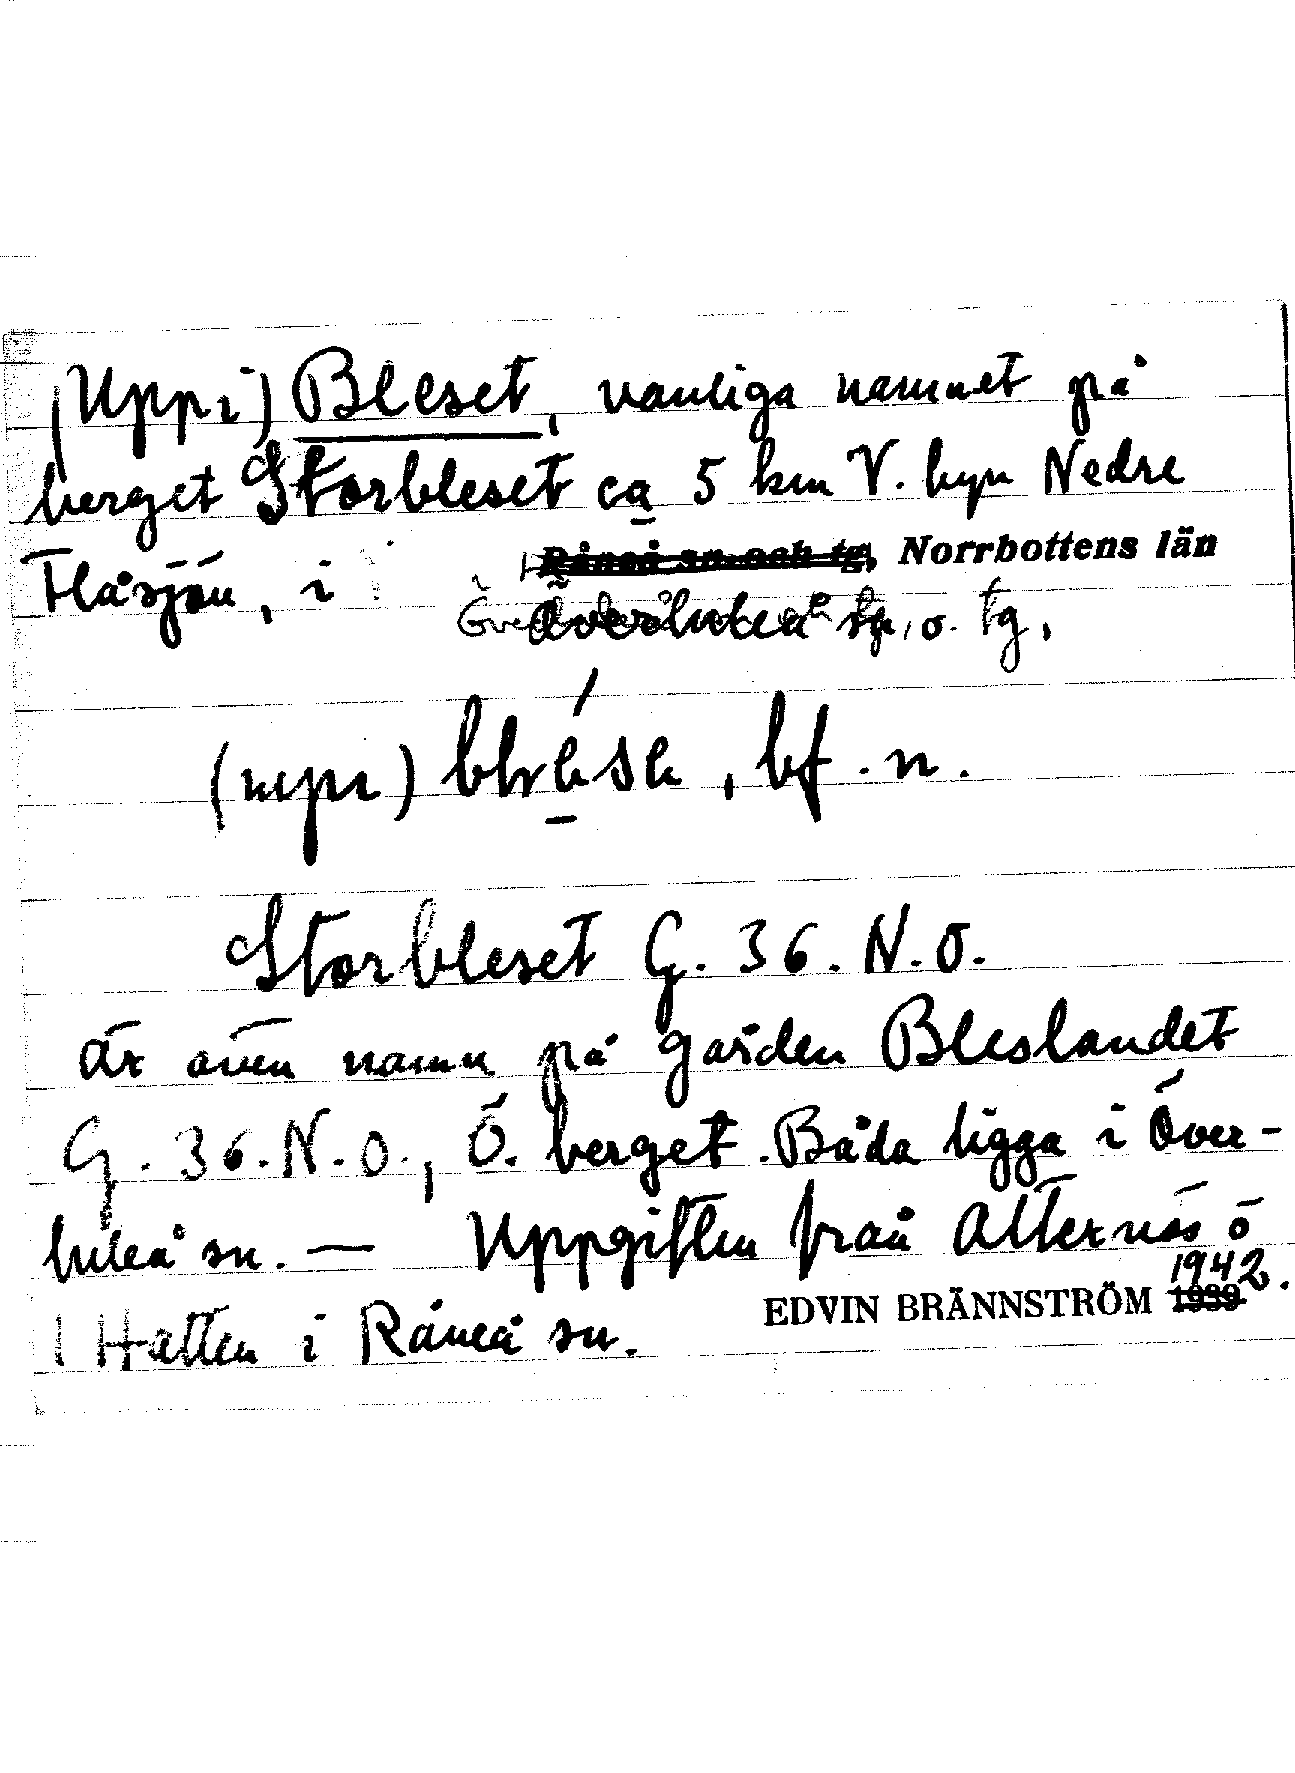 (Uppi) Bleset, vanliga namnet på
berget Storbleset ca 5 km V. byn Nedre
Flåsjön, i Råneå sn och tg, Norrbottens län
Överluleå sn o. tg,
(upi) blrése, bf. n.
Storbleset G. 36. N. O.
är även namn på gården Bleslandet
G. 36. N. O., Ö. berget. Båda ligga i Över-
luleå sn. — Uppgiften från Alternäs ö
Hatten i Råneå sn. EDVIN BRÄNNSTRÖM 1939 1942.